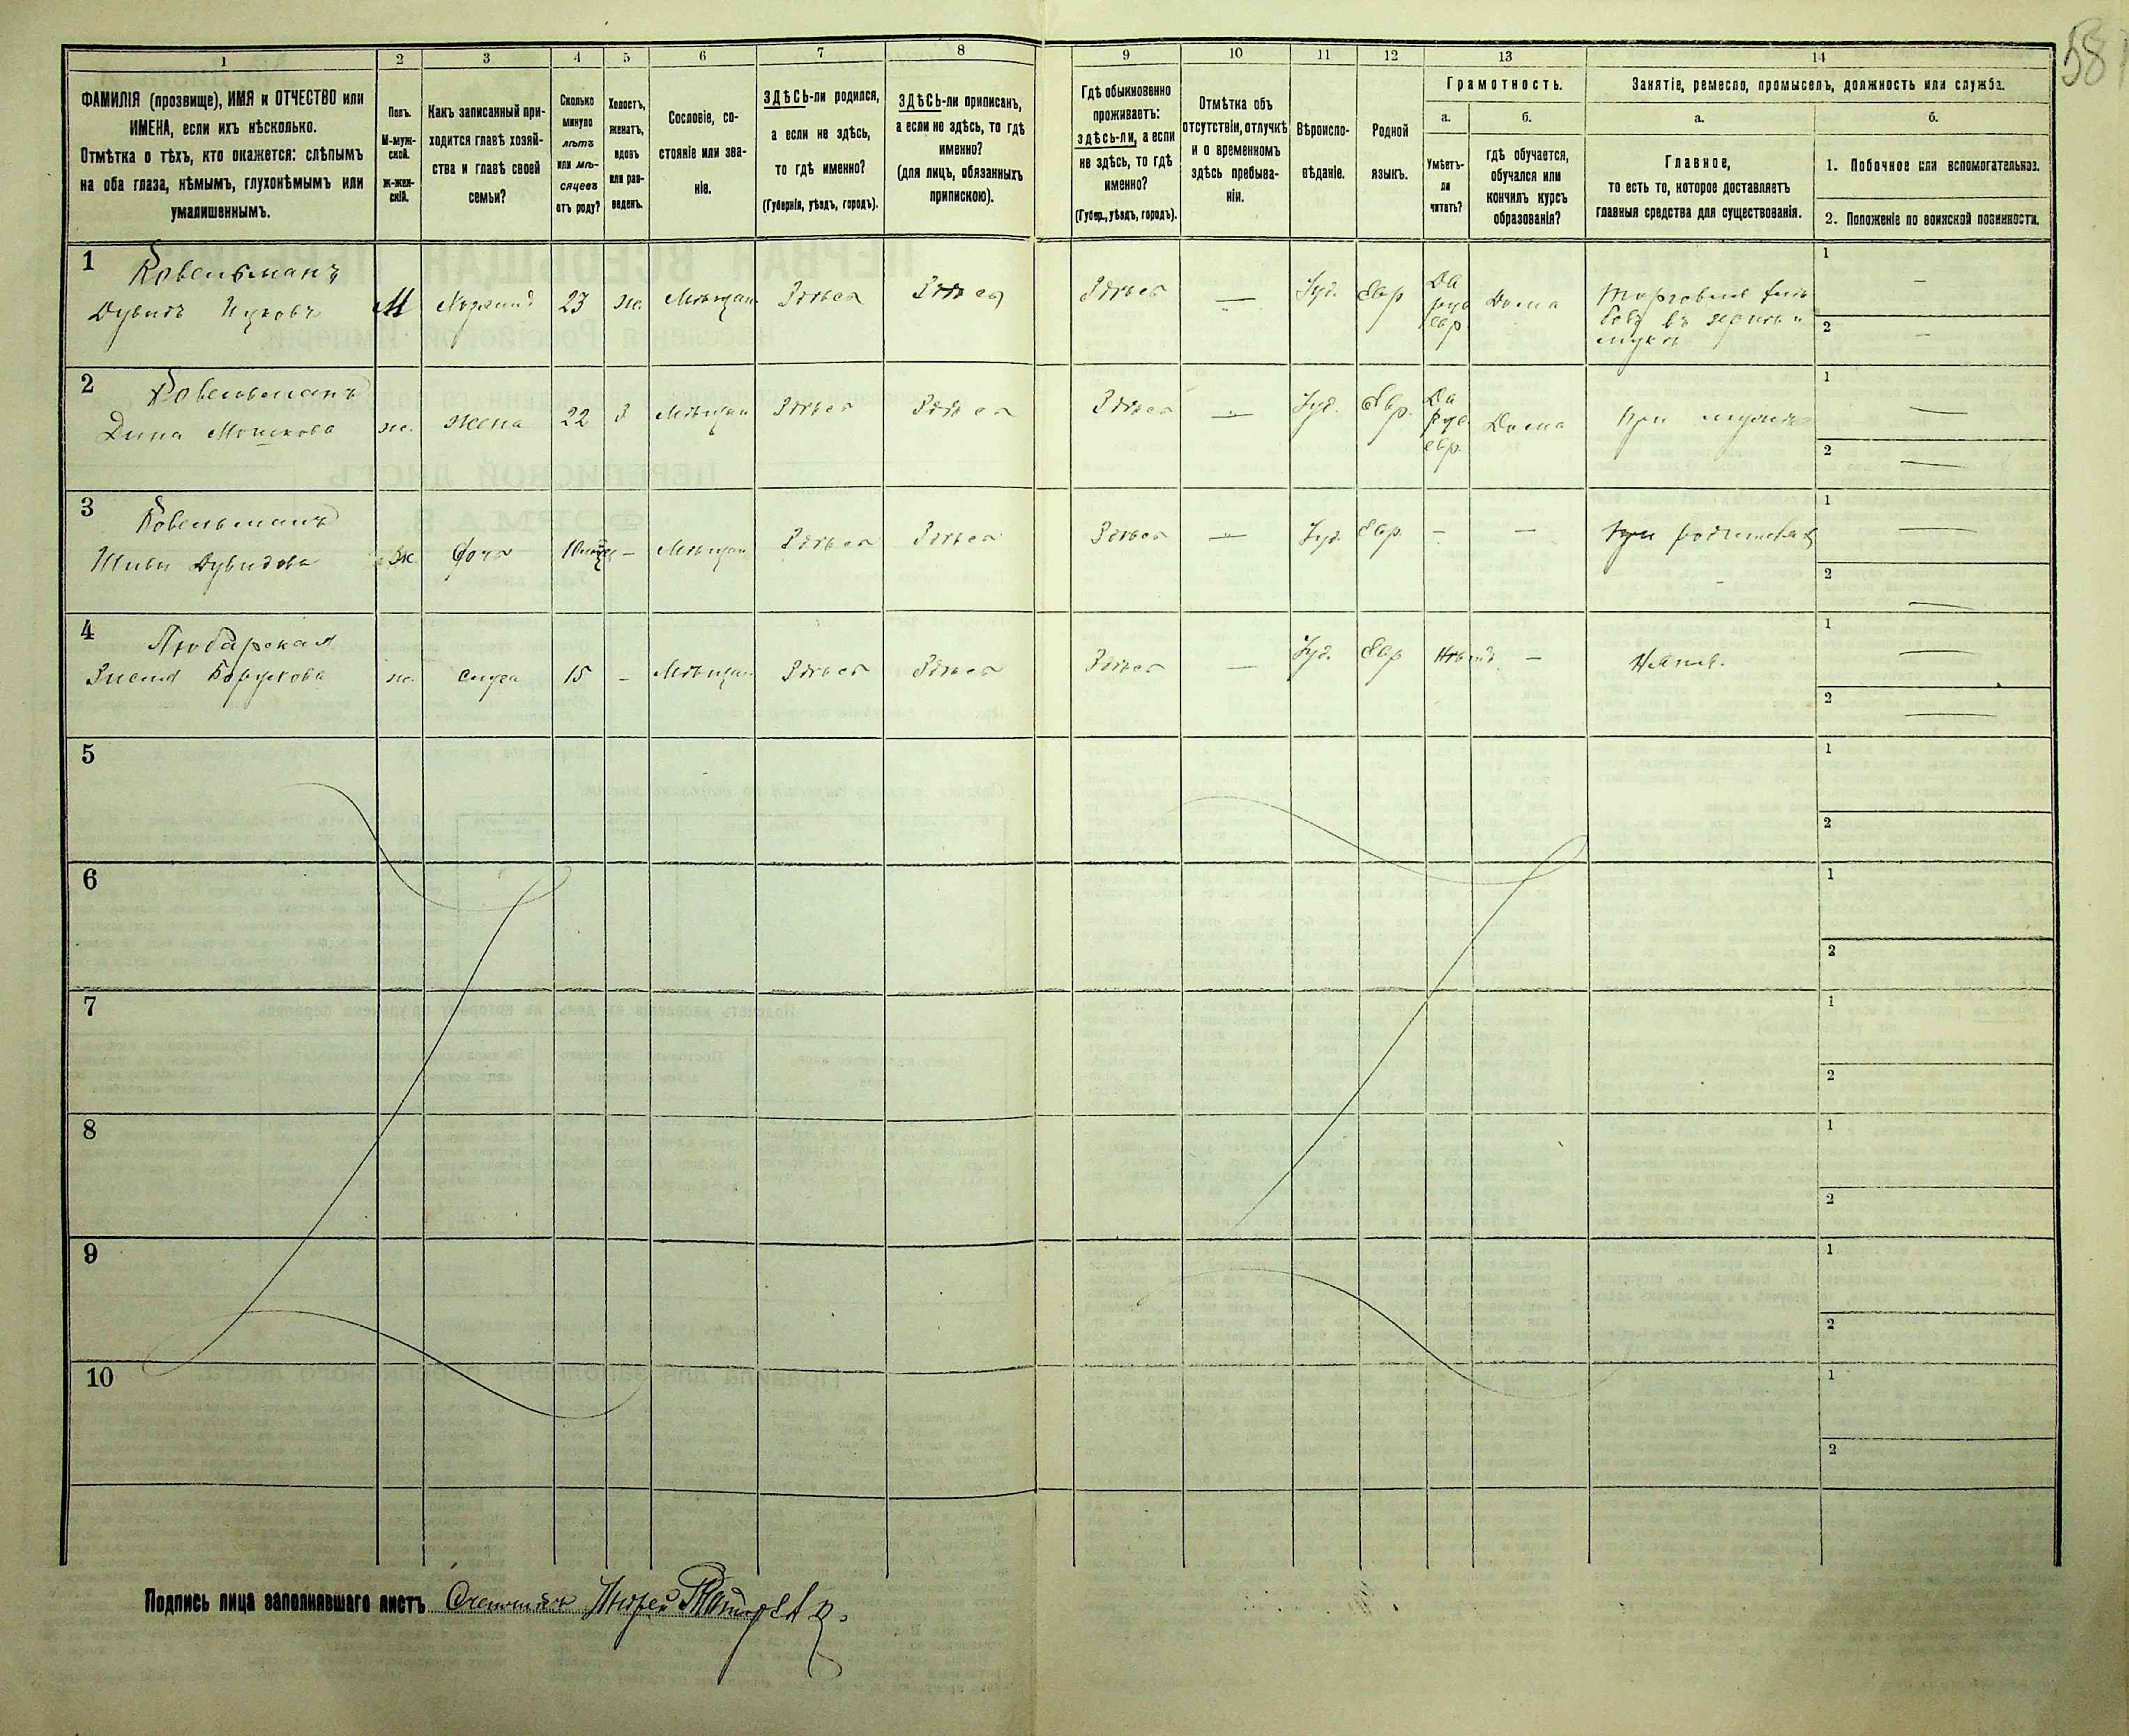 587
1 2 3 4 5 6 7 8 9 10 11 12 13 14
ФАМИЛІЯ (прозвище), ИМЯ и ОТЧЕСТВО или
ИМЕНА, если ихъ нѣсколько.
Отмѣтка о тѣхъ, кто окажется: слѣпымъ
на оба глаза, нѣмымъ, глухонѣмымъ или
умалишеннымъ.
Полъ.
М-муж-
ской.
Ж-жен-
скій.
Какъ записанный при-
ходится главѣ хозяй-
ства и главѣ своей
семьи?
Сколько
минуло
лѣтъ
или мѣ-
сяцевъ
отъ роду?
Холостъ,
женатъ,
вдовъ
или раз-
веденъ.
Сословіе, со-
стояніе или зва-
ніе.
ЗДѢСЬ-ли родился,
а если не здѣсь,
то гдѣ именно?
(Губернія, уѣздъ, городъ).
ЗДѢСЬ-ли приписанъ,
а если не здѣсь, то гдѣ
именно?
(для лицъ, обязанныхъ
припискою).
Гдѣ обыкновенно
проживаетъ:
здѣсь-ли, а если
не здѣсь, то гдѣ
именно?
(Губер., уѣздъ, городъ).
Отмѣтка объ
отсутствіи, отлучкѣ
и о временномъ
здѣсь пребыва-
ніи.
Вѣроиспо-
вѣданіе.
Родной
языкъ.
Грамотность.
а.
Умѣетъ-
ли
читать?
б.
гдѣ обучается,
обучался или
кончилъ курсъ
образованія?
Занятіе, ремесло, промыселъ, должность или служба.
а.
Главное,
то есть то, которое доставляетъ
главныя средства для существованія.
б.
1. Побочное или вспомогательное.
2. Положеніе по воинской повинности.
1 Ковельманъ
Дувидъ М Хозяинъ 23 ж. Мѣщан. Здѣсь Здѣсь Здѣсь — Іуд. Евр Да
рус
евр Дома Торговля
въ зернѣ и
муки
1 —
2 —
2 Ковельманъ
Дина Мошкова ж. жена 22 З Мѣщан Здѣсь Здѣсь Здѣсь — Іуд. Евр. Да
рус
евр. Дома При мужѣ
1 —
2 —
3 Ковельманъ
Дувидова Ж дочь — Мѣщан Здѣсь Здѣсь Здѣсь — Іуд. Евр. — — При родителях
1 —
2 —
4 Любарская
Борухова ж. 15 — Мѣщан Здѣсь Здѣсь Здѣсь — Іуд. Евр —
1 —
2 —
5 1
2
6 1
2
7 1
2
8 1
2
9 1
2
10 1
2
Подпись лица заполнявшаго листъ